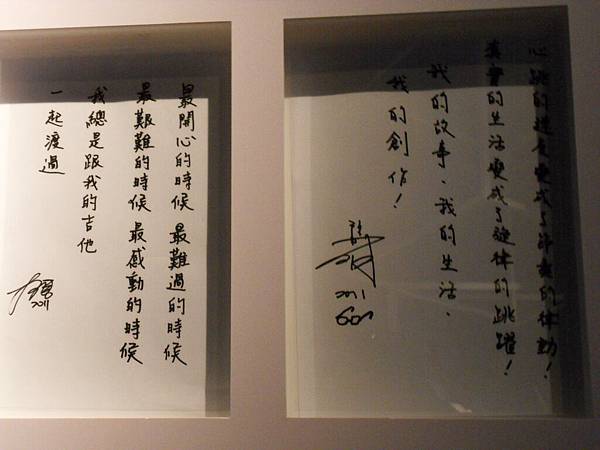 心跳的速度變成了節奏的律動！
真實的生活變成了旋律的跳躍！
我的故事、我的生活、
我的創作！
2011
最開心的時候 最難過的時候
最艱難的時候 最感動的時候
我總是跟我的吉他
一起渡過
2011